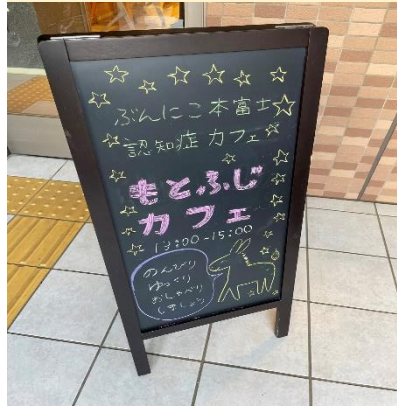 ぶんにこ本富士
認知症カフェ
もとふじ
カフェ
13:00-15:00
のんびり
ゆっくり
おしゃべり
しましょう